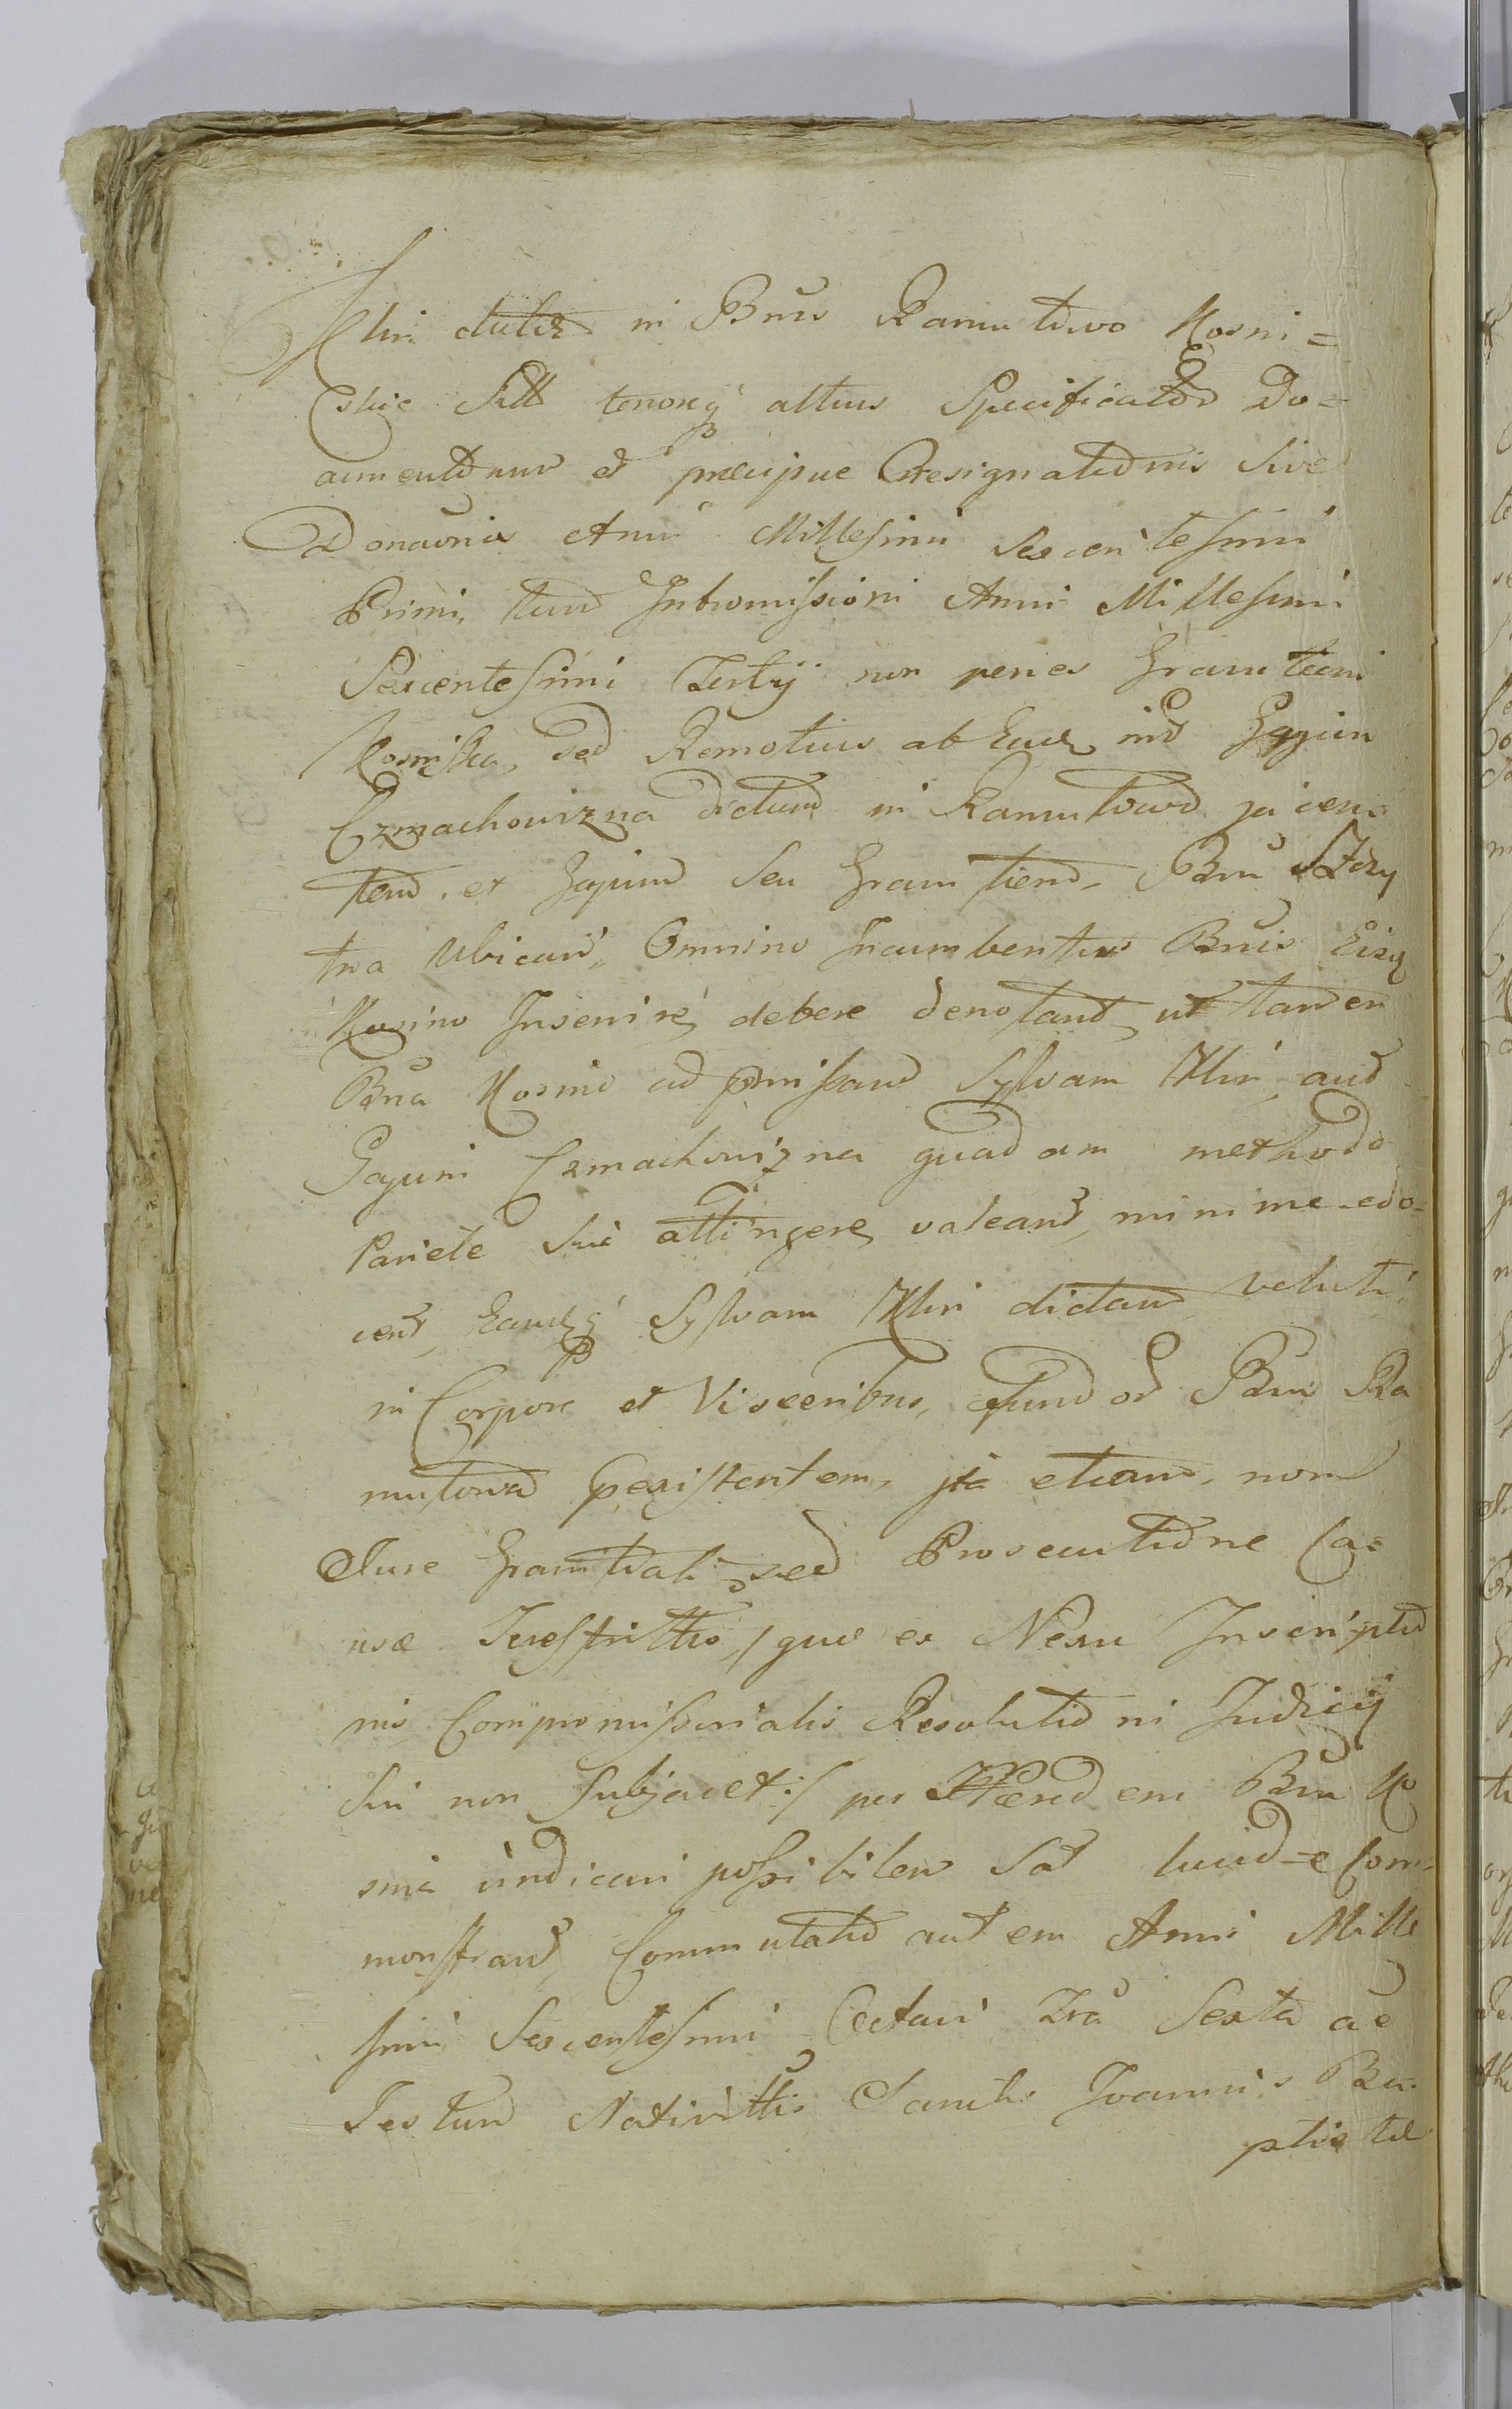 in Bnis Ramułtowo Kosni=
skie tenorq altius Specificator Do=
cumentorum et præcipue Resignationis sive
Donaõnis Anni Millesimi Sexcentesimi
Primi, tum Intromissioni Anni Millesimi
Sexcentesimi Tertij non penes Graniciem
Kosmiska, sed Remotius ab Eadem in Gajum
Czmachowizna dictum in Ramułtowo jacen
tem, et Gajum seu Graniciem, Bnr
tna Ubicari, Omnino Incumbentis Bnis
Kosino Inserire debere denotant, ut tamen
Bna Kosmin ad præmissam Sylvam Uhir, aut
Gajum Czmachowizna quadam methodo
Pariete sue attingere valeant, minime edo=
cent, Eandq Sylvam Uhir dictam veluti
in Corpore et Visceribus, fundo Bnr Ra
mutowo existentem, ita etiam, non
Jure sed Prosecutione Ca=
usæ Terestris /: quæ ex Nexu Inscriptio
nis Compromissorialis Resolutioni Judicij
sui non subjacet :/ per Hæredem Bnr Ko
smin vindicari possibilem sat lucide Com=
monstrant, Commutatio autem Anni Mille
simi Sexcentesimi Octavi Fra Sexta ante
Festum Nativittis Sancti Joannis Ba=
ptistæ